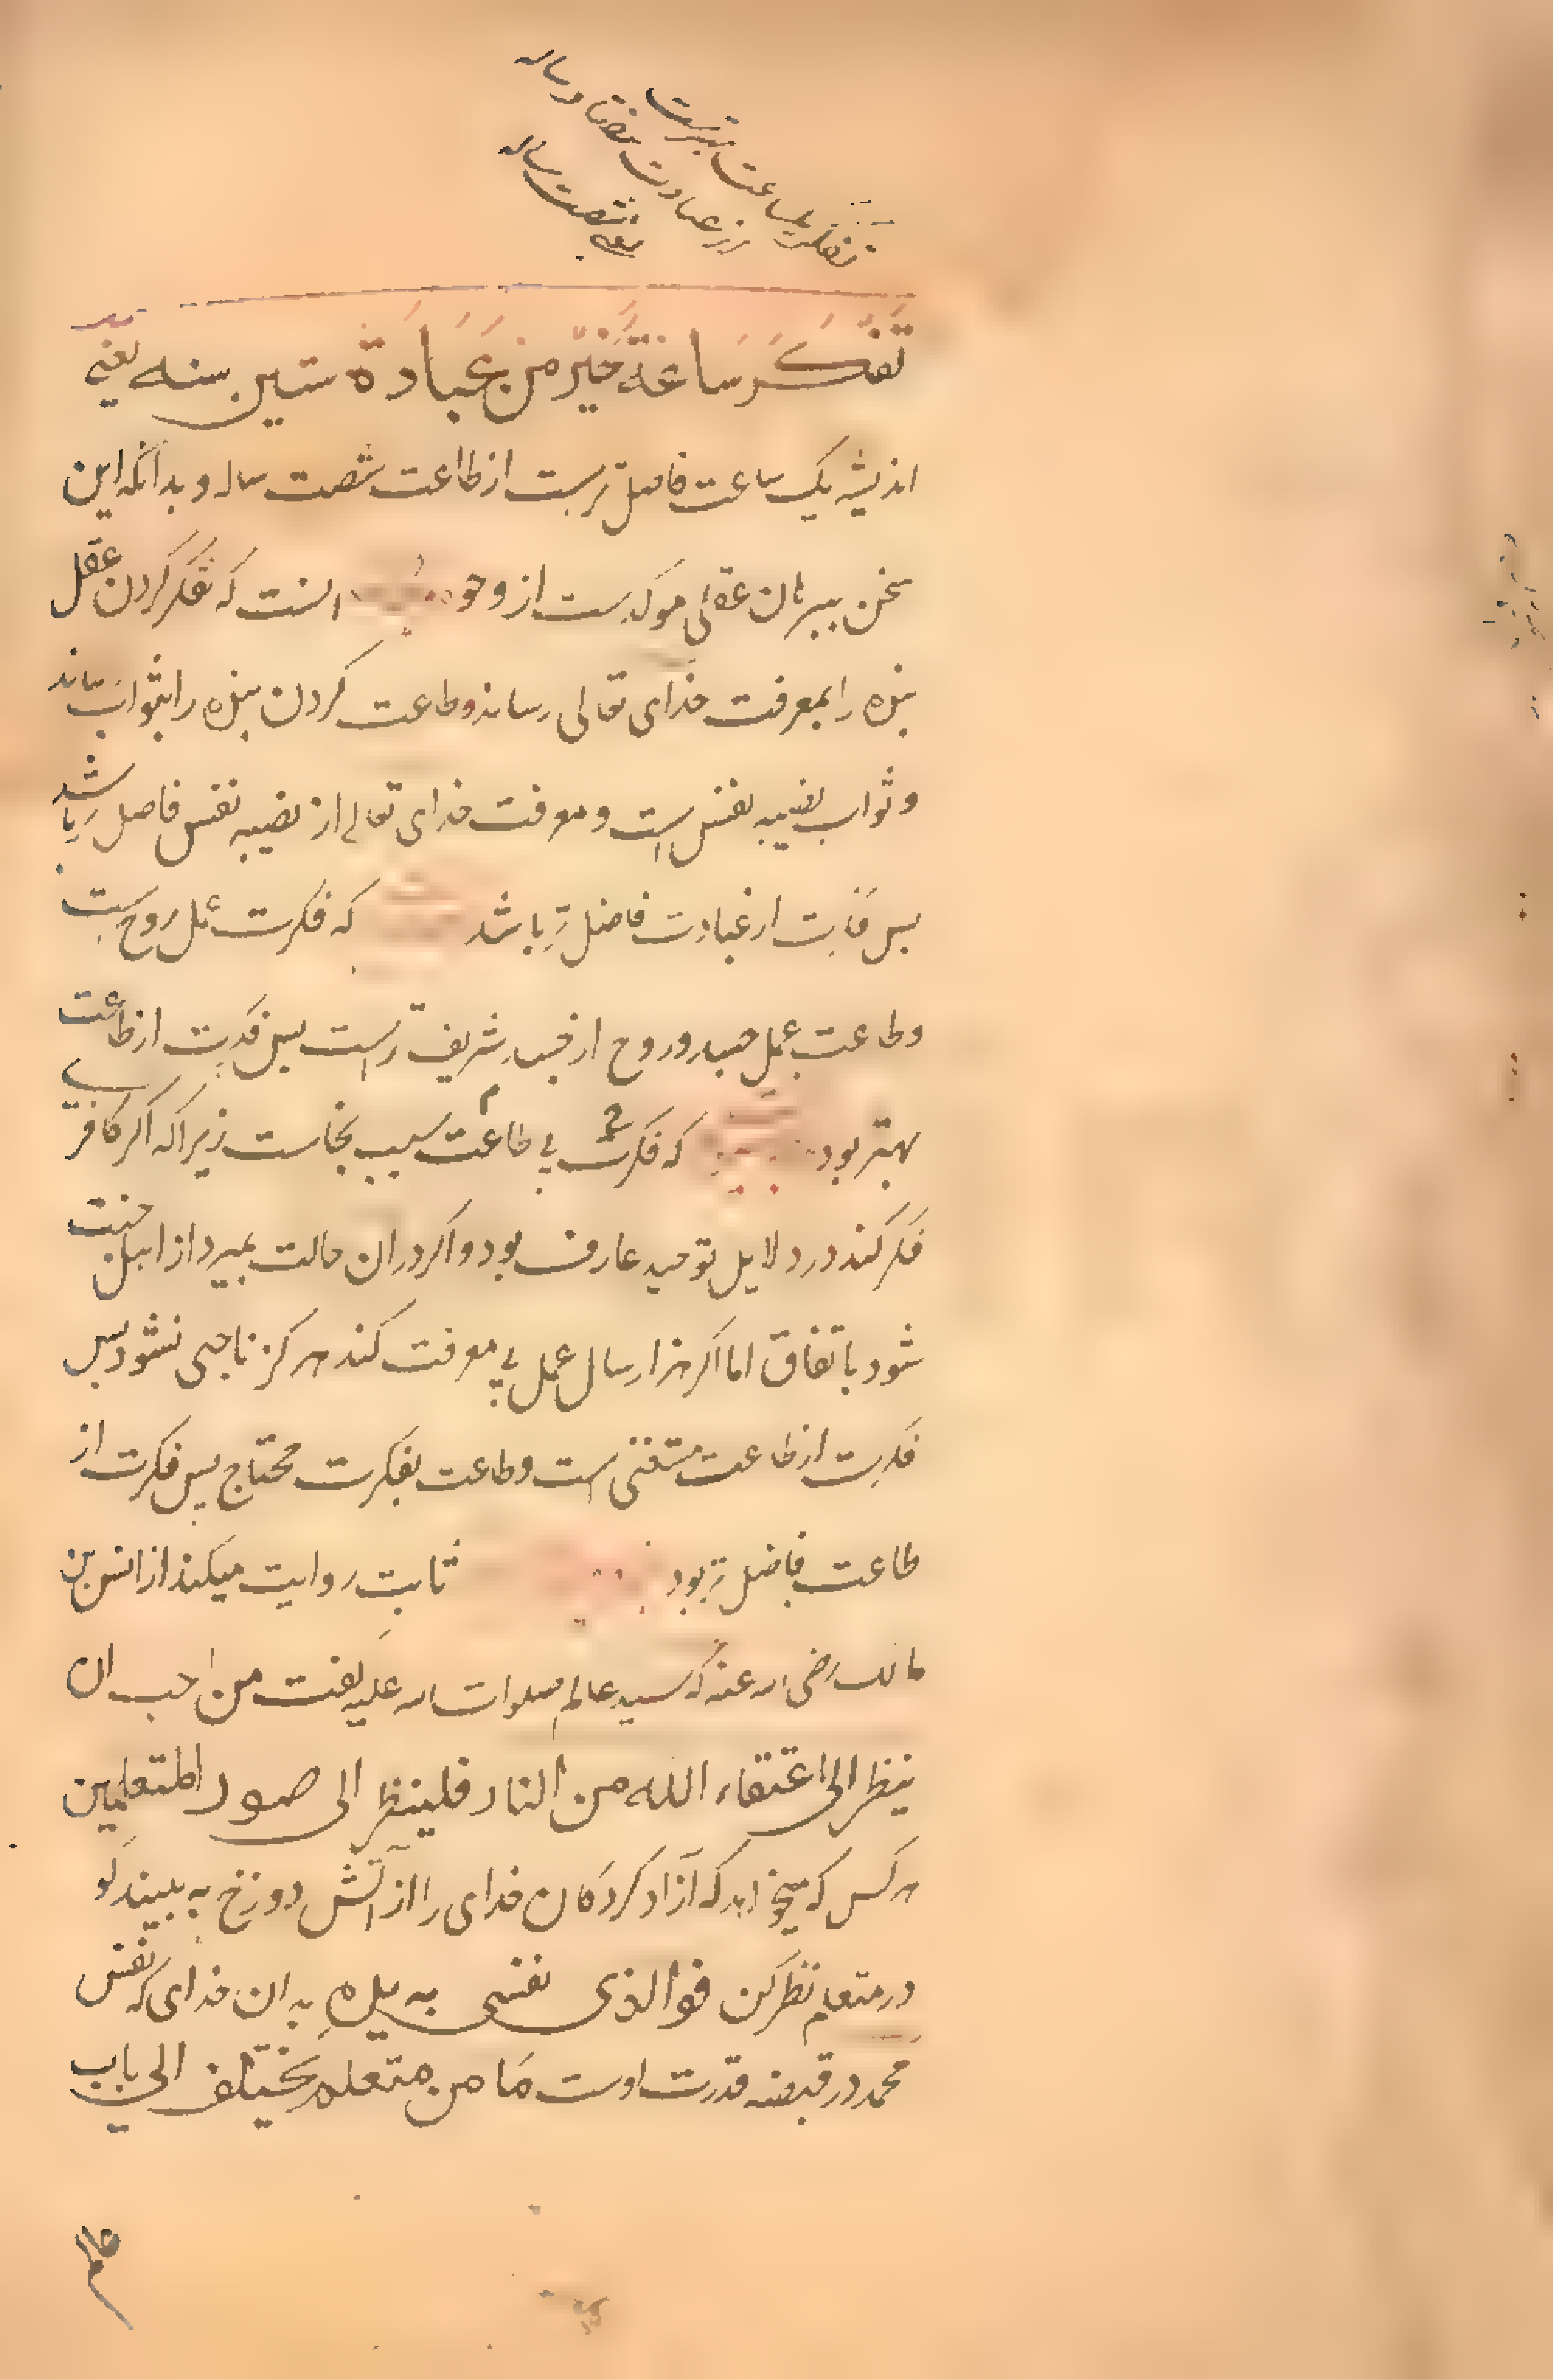 تفکر یکساعت بهترست
از عبادت هفتاد ساله
شصت ساله
تَفَكُّرُ سَاعَةٍ خَيْرٌ مِنْ عِبَادَةِ ستين سنه یعنی
اندیشه یک ساعت فاضل ترست از طاعت شصت ساله و بدانکه این
سخن ببرهان عقلی موکدست از وجوه انست که تفکر کردن عقل
بنده را بمعرفت خدای تعالی رساند و طاعت کردن بنده را بثواب رساند
و ثواب نصیبه نفس است و معرفت خدای تعالی از نصیبه نفس فاضل تر باشد
بس فکرت از عبادت فاضل تر باشد که فکرت عمل روح است
و طاعت عمل جسد و روح از جسد شریف تر است بس فکرت از طاعت
بهتر بود که فکرت بی طاعت سبب نجاست زیرا که اکر کافر
فکر کند در دلایل توحید عارف بود و اکر در ان حالت بمیرد از اهل جنت
شود باتفاق اما اکر هزار سال عمل بی معرفت کند هرکز ناجی نشود بس
فکرت از طاعت مستغنی است و طاعت بفکرت محتاج بس فکرت از
طاعت فاضل تر بود ثابت روایت میکند از انس بن
مالک رضی الله عنه که سید عالم صلوات الله علیه کفت من احب ان
ینظر الی اعتقاء الله من النار فلینظر الی صور المتعلمین
هرکس که میخواهد که آزاد کردکان خدای را از آتش دوزخ به بیند کو
در متعلم نظر کن فوالذی نفسی بیده به ان خدای که نفس
محمد در قبضه قدرت اوست مَا من متعلم یختلف الی باب
عالم